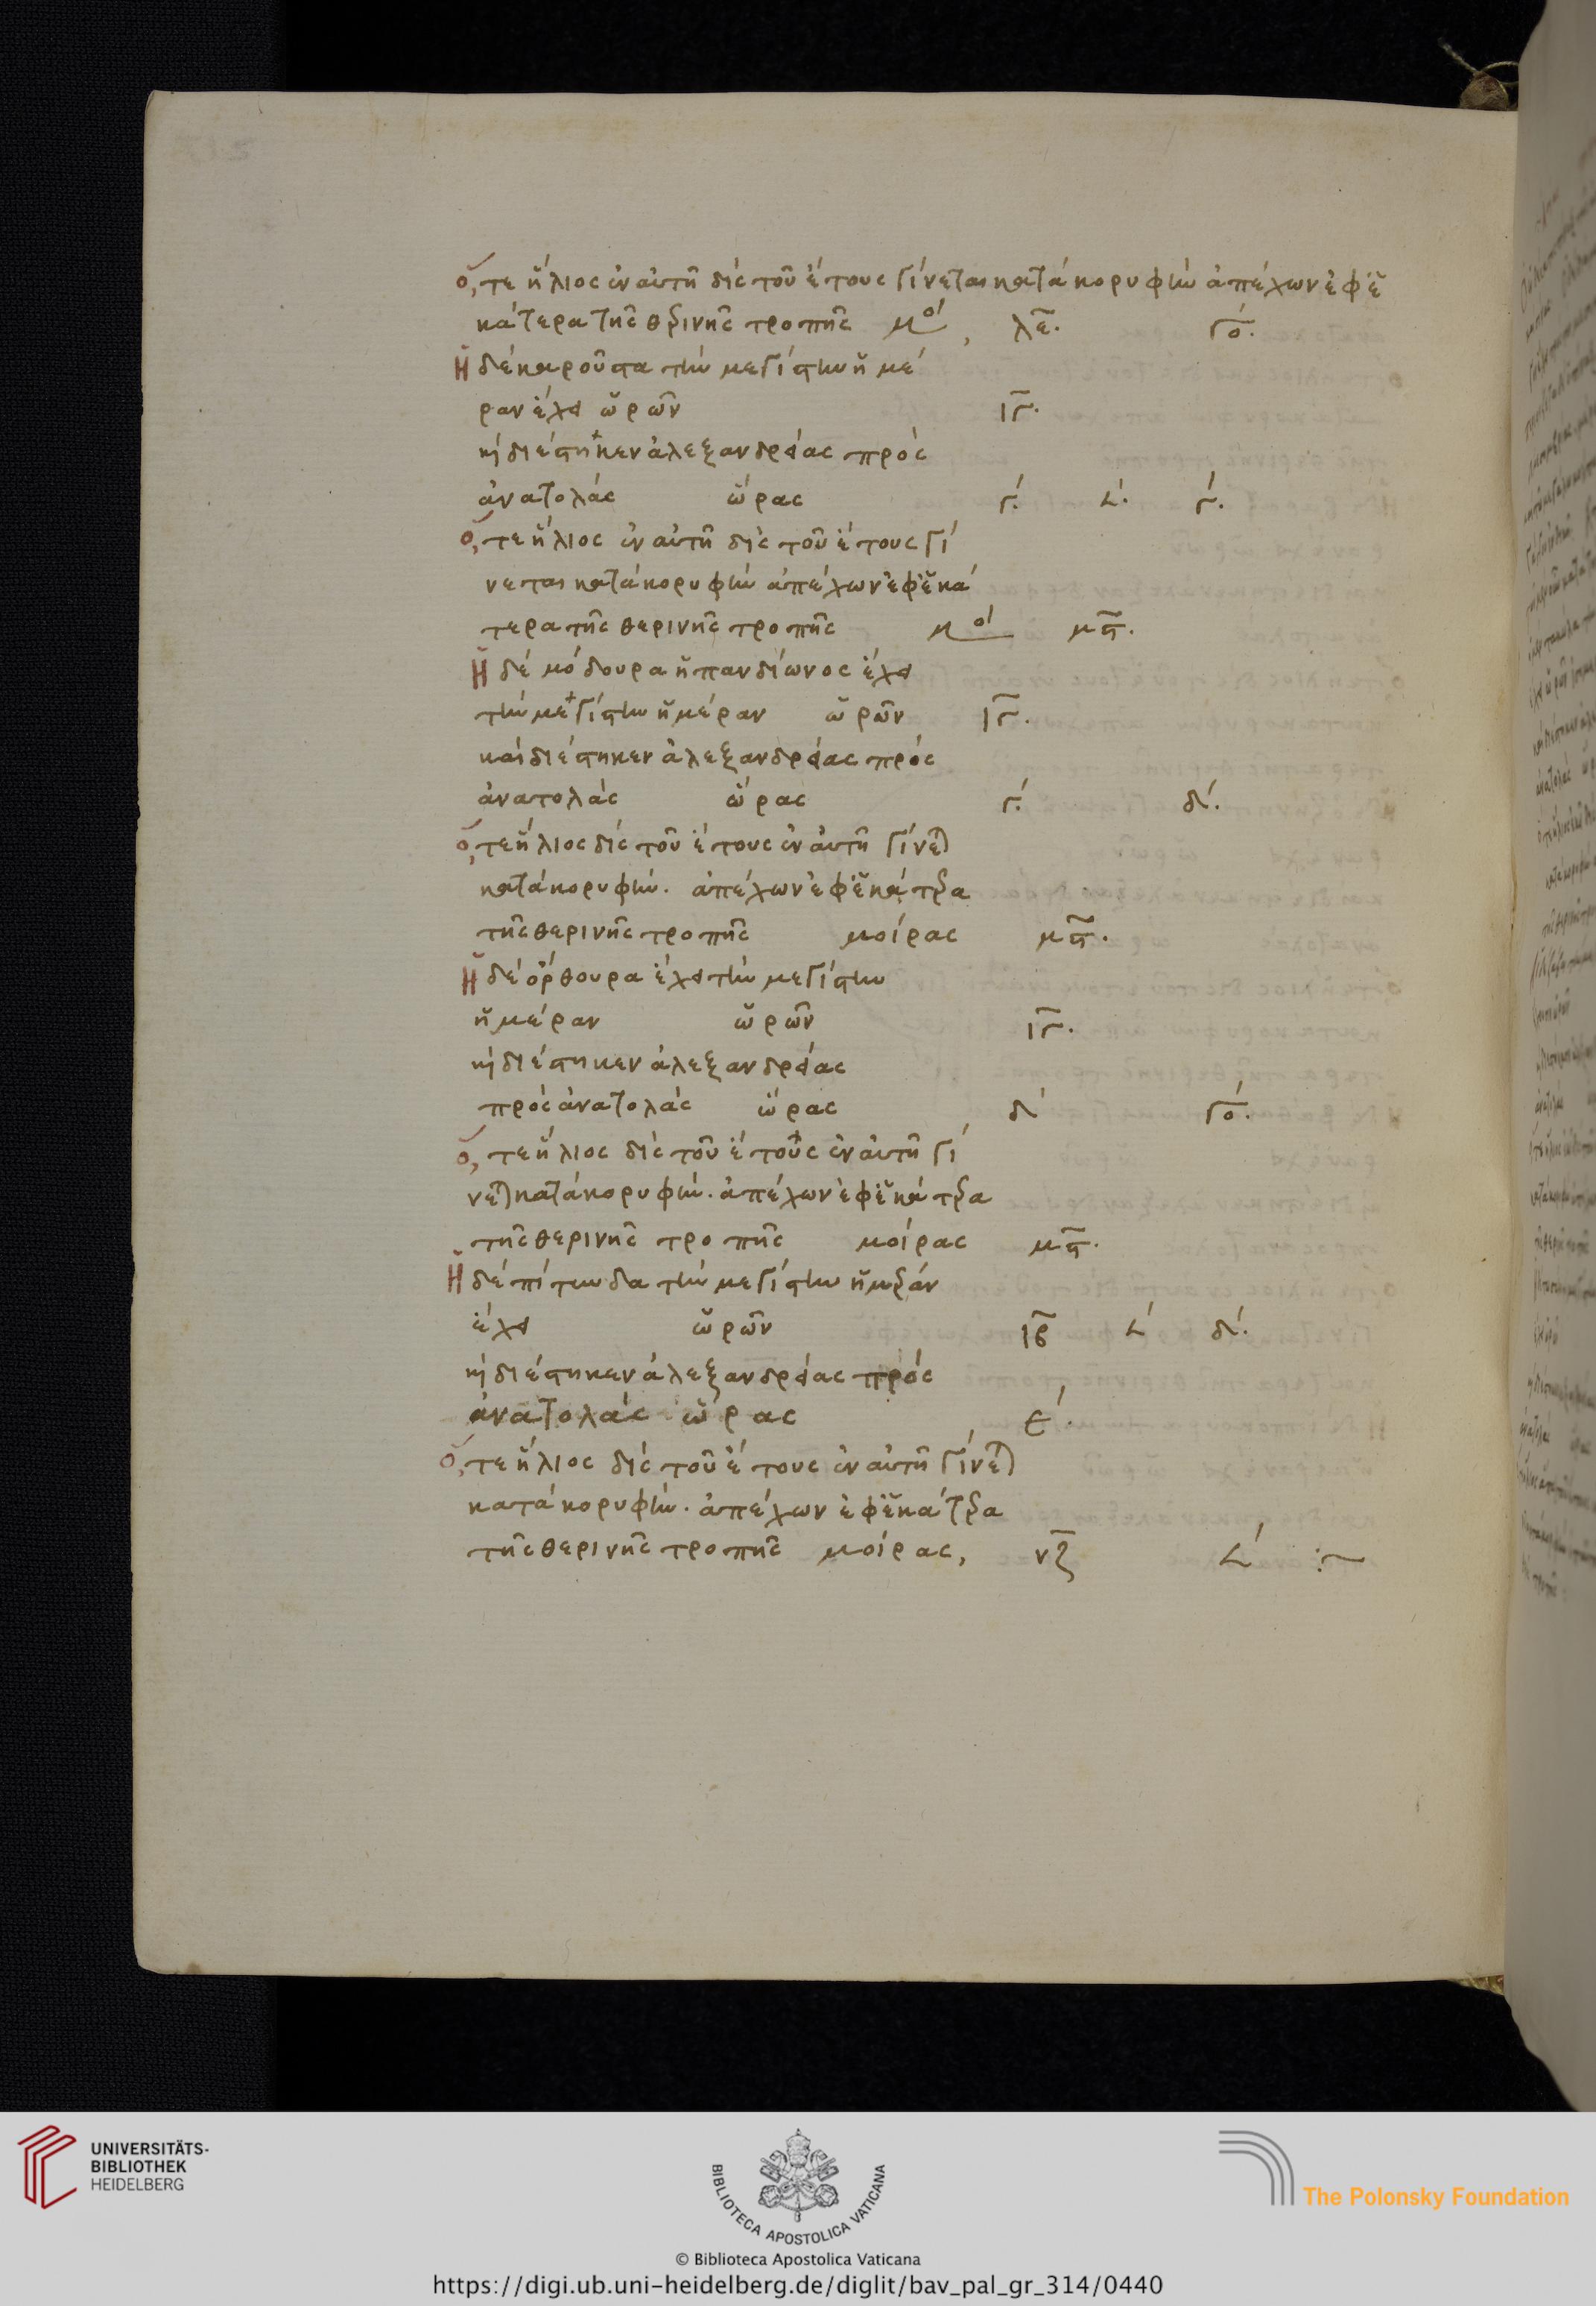 ὅ, τε ἥλιος ἐν αὐτῆ δὶς τοῦ ἔτους γίνεται κατὰ κορυφὴν ἀπέχων ἐφ ἑ
κάτερα τῆς θερινῆς τροπῆς μοί, λε. γο.
Ἡ δὲ καροῦρα τὴν μεγίστην ἡμέ
ραν ἔχει ὡρῶν ιγ.
κὶ διέστηκεν ἀλεξανδρείας πρὸς
ἀνατολὰς ὥρας γ. 𐅵. γ.
ὅ, τε ἥλιος ἐν αὐτῆ δὶς τοῦ ἔτους γί
νεται κατὰ κορυφὴν ἀπέχων ἐφ ἑκά
τερα τῆς θερινῆς τροπῆς μοί μϛ.
Ἡ δὲ μόδουρα ἡ πανδίωνος ἔχει
τὴν μεγίστην ἡμέραν ὡρῶν ιγ.
καὶ διέστηκεν ἀλεξανδρείας πρὸς
ἀνατολὰς ὥρας γ. δ.
ὅ, τε ἥλιος δὶς τοῦ ἔτους ἐν αὐτῆ γίνε)
κατὰ κορυφὴν. ἀπέχων ἐφ ἑκάτερα
τῆς θερινῆς τροπῆς μοίρας μϛ.
Ἡ δὲ ὄρθουρα ἔχει τὴν μεγίστην
ἡμέραν ὡρῶν ιγ.
κὶ διέστηκεν ἀλεξανδρείας
πρὸς ἀνατολὰς ὥρας δ γο.
ὅ, τε ἥλιος δὶς τοῦ ἔτους ἐν αὐτῆ γί
νε) κατὰ κορυφὴν. ἀπέχων ἐφ ἑκάτερα
τῆς θερινῆς τροπῆς μοίρας μϛ.
Ἡ δὲ πίτυνδα τὴν μεγίστην ἡμέραν
ἔχει ὡρῶν ιβ 𐅵 δ.
κὶ διέστηκεν ἀλεξανδρείας πρὸς
ἀνατολὰς ὥρας ε.
ὅ, τε ἥλιος δὶς τοῦ ἔτους ἐν αὐτῆ γίνε)
κατὰ κορυφὴν. ἀπέχων ἐφ ἑκάτερα
τῆς θερινῆς τροπῆς μοίρας, νζ 𐅵 :~
UNIVERSITÄTS-
BIBLIOTHEK
HEIDELBERG
BIBLIOTECA APOSTOLICA VATICANA
The Polonsky Foundation
© Biblioteca Apostolica Vaticana
https://digi.ub.uni-heidelberg.de/diglit/bav_pal_gr_314/0440